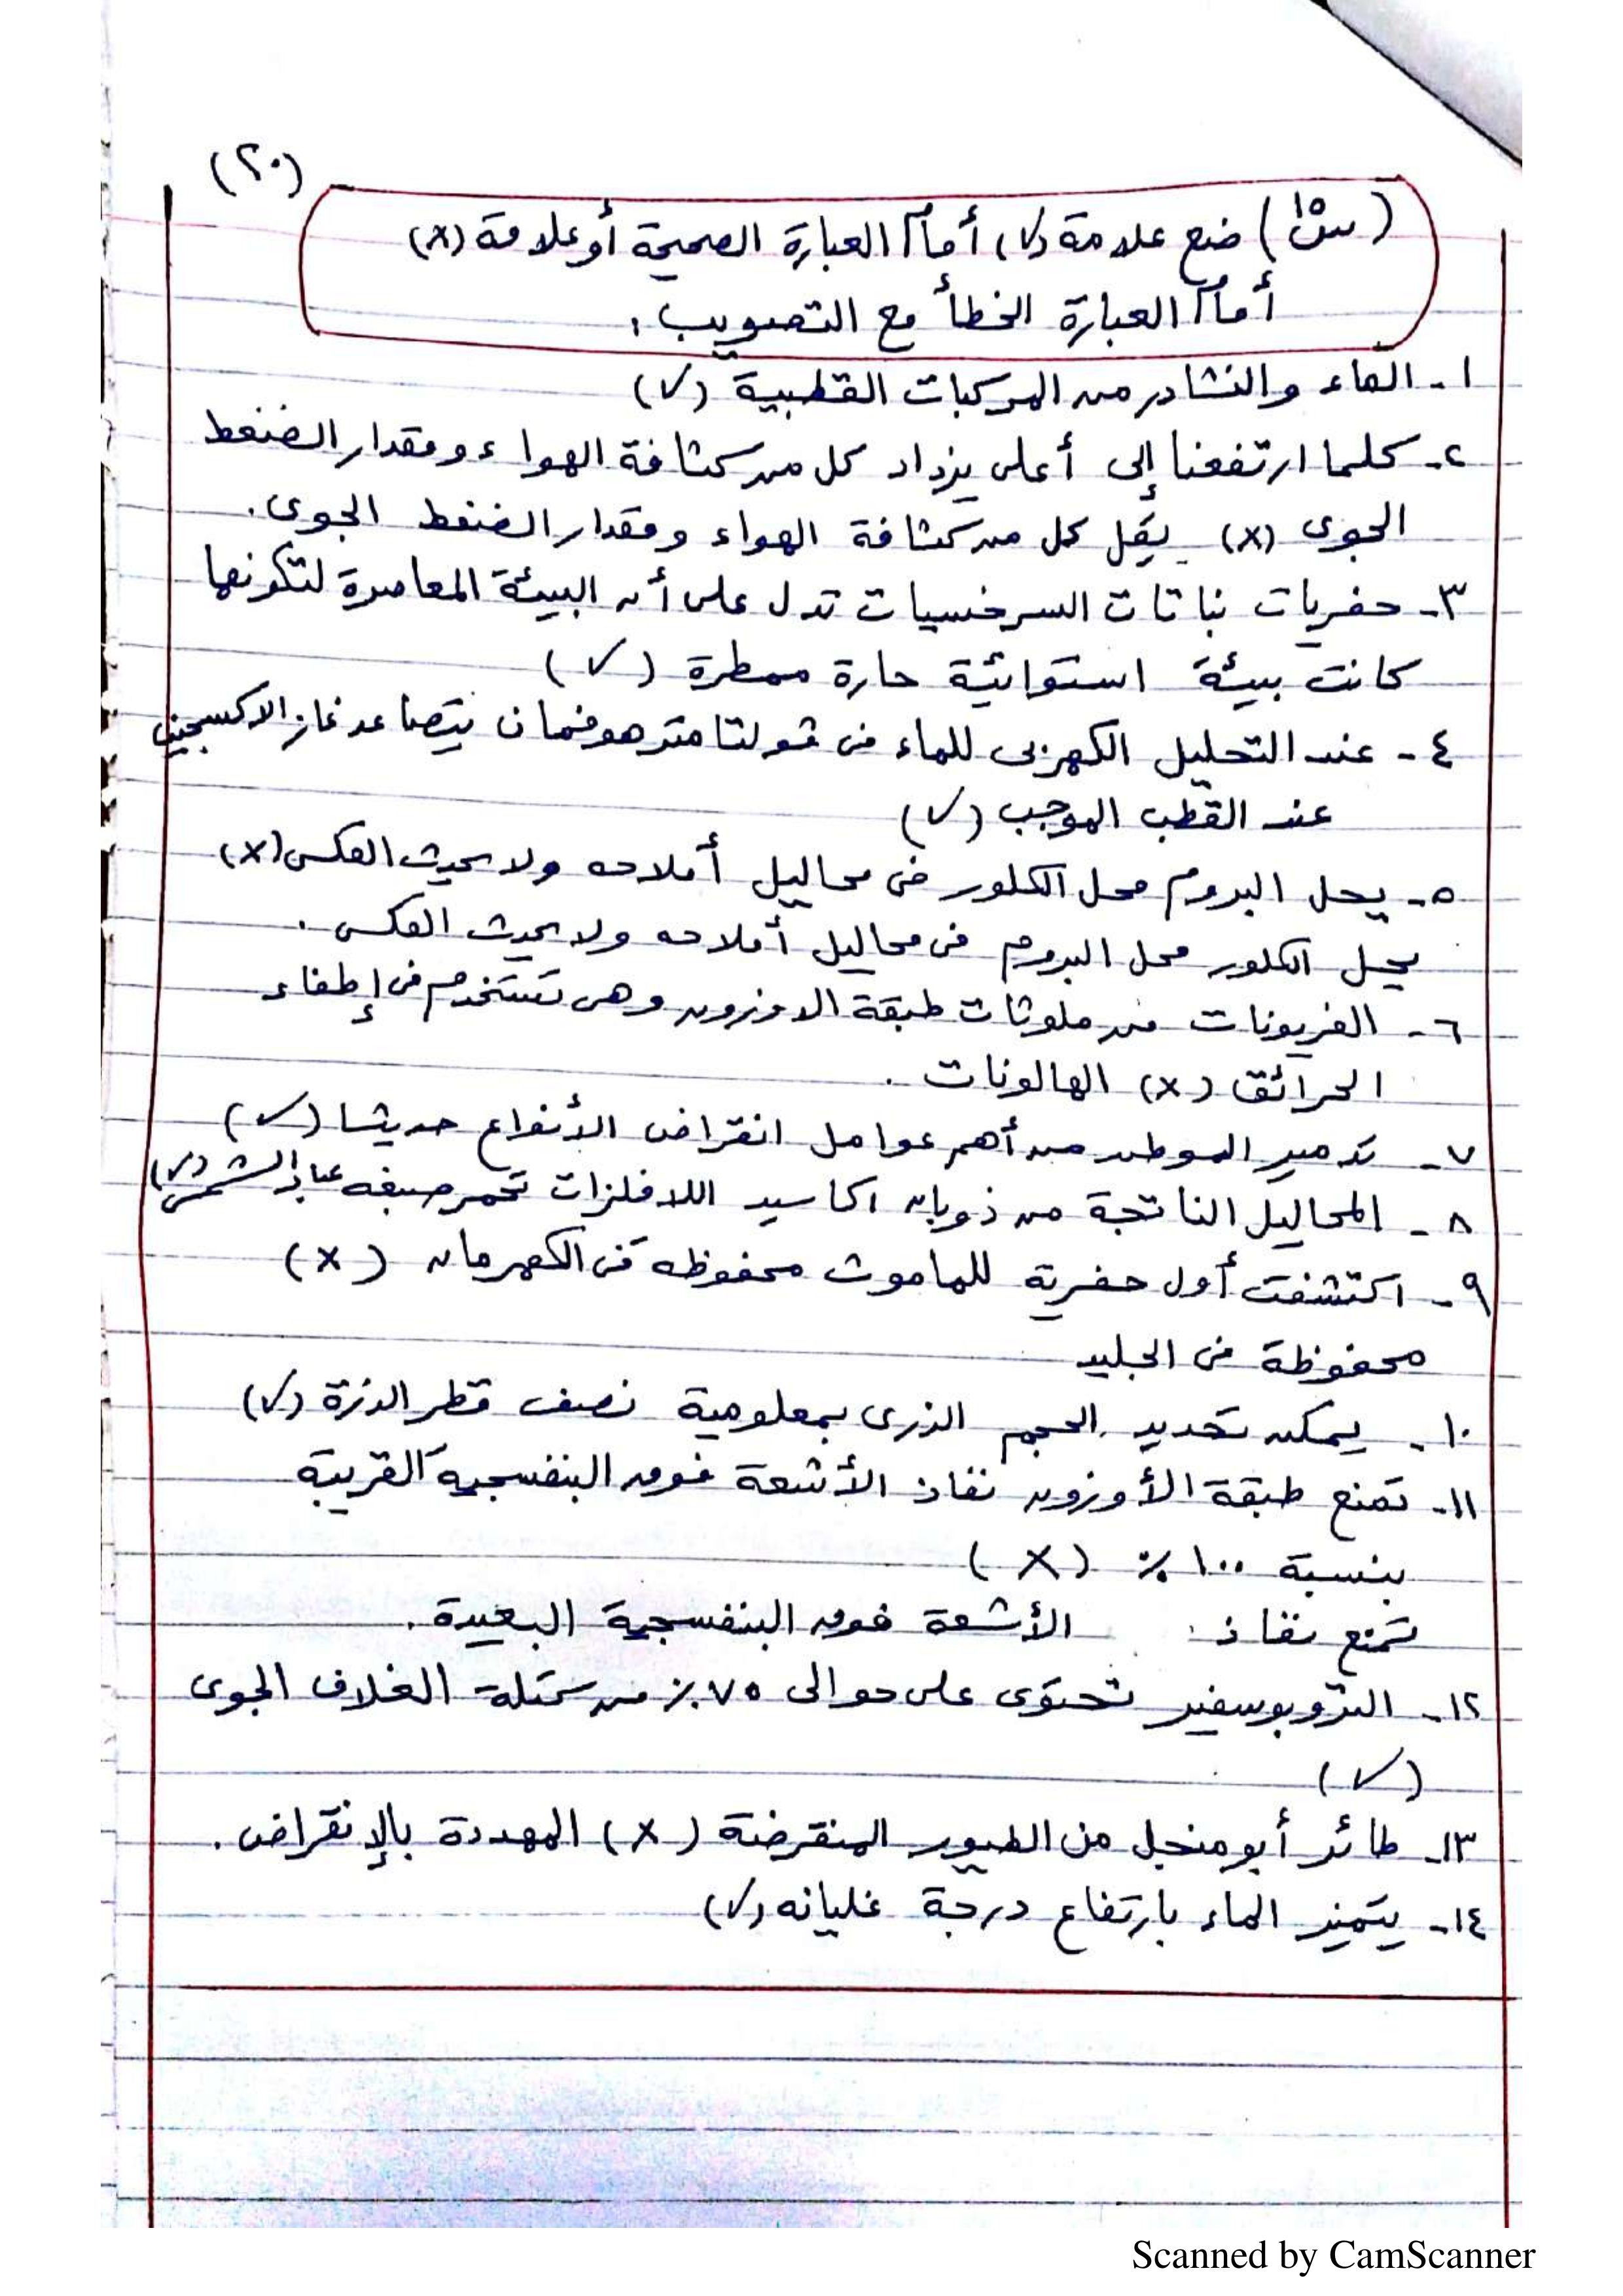 (٢٠)
(س١٥) ضع علامة (✓) أمام العبارة الصحيحة أو علامة (×)
أمام العبارة الخطأ مع التصويب :
١- الماء والنشادر من المركبات القطبية (✓)
٢- كلما ارتفعنا إلى أعلى يزداد كل من كثافة الهواء ومقدار الضغط
الجوى (×) يقل كل من كثافة الهواء ومقدار الضغط الجوى.
٣- حفريات نباتات السرخسيات تدل على أن البيئة المعاصرة لتكونها
كانت بيئة استوائية حارة ممطرة (✓)
٤- عند التحليل الكهربى للماء فى فولتامتر هوفمان يتصاعد غاز الاكسجين
عند القطب الموجب (✓)
٥- يحل البروم محل الكلور فى محاليل أملاحه ولا يحدث العكس (×)
يحل الكلور محل البروم فى محاليل أملاحه ولا يحدث العكس.
٦- الفريونات من ملوثات طبقة الاوزون وهى تستخدم فى إطفاء
الحرائق (×) الهالونات.
٧- تدمير الموطن من أهم عوامل انقراض الأنواع حديثا (✓)
٨- المحاليل الناتجة من ذوبان اكاسيد اللافلزات تحمر صبغه عباد الشمس (✓)
٩- اكتشفت أول حفرية للماموث محفوظه فى الكهرمان (×)
محفوظة فى الجليد
١٠- يمكن تحديد الحجم الذرى بمعلومية نصف قطر الذرة (✓)
١١- تمنع طبقة الأوزون نفاذ الأشعة فوق البنفسجية القريبة
بنسبة ١٠٠٪ (×)
تمنع نفاذ الأشعة فوق البنفسجية البعيدة.
١٢- التروبوسفير تحتوى على حوالى ٧٥٪ من كتلة الغلاف الجوى
(✓)
١٣- طائر أبو منجل من الطيور المنقرضة (×) المهددة بالإنقراض.
١٤- يتميز الماء بارتفاع درجة غليانه (✓)
Scanned by CamScanner